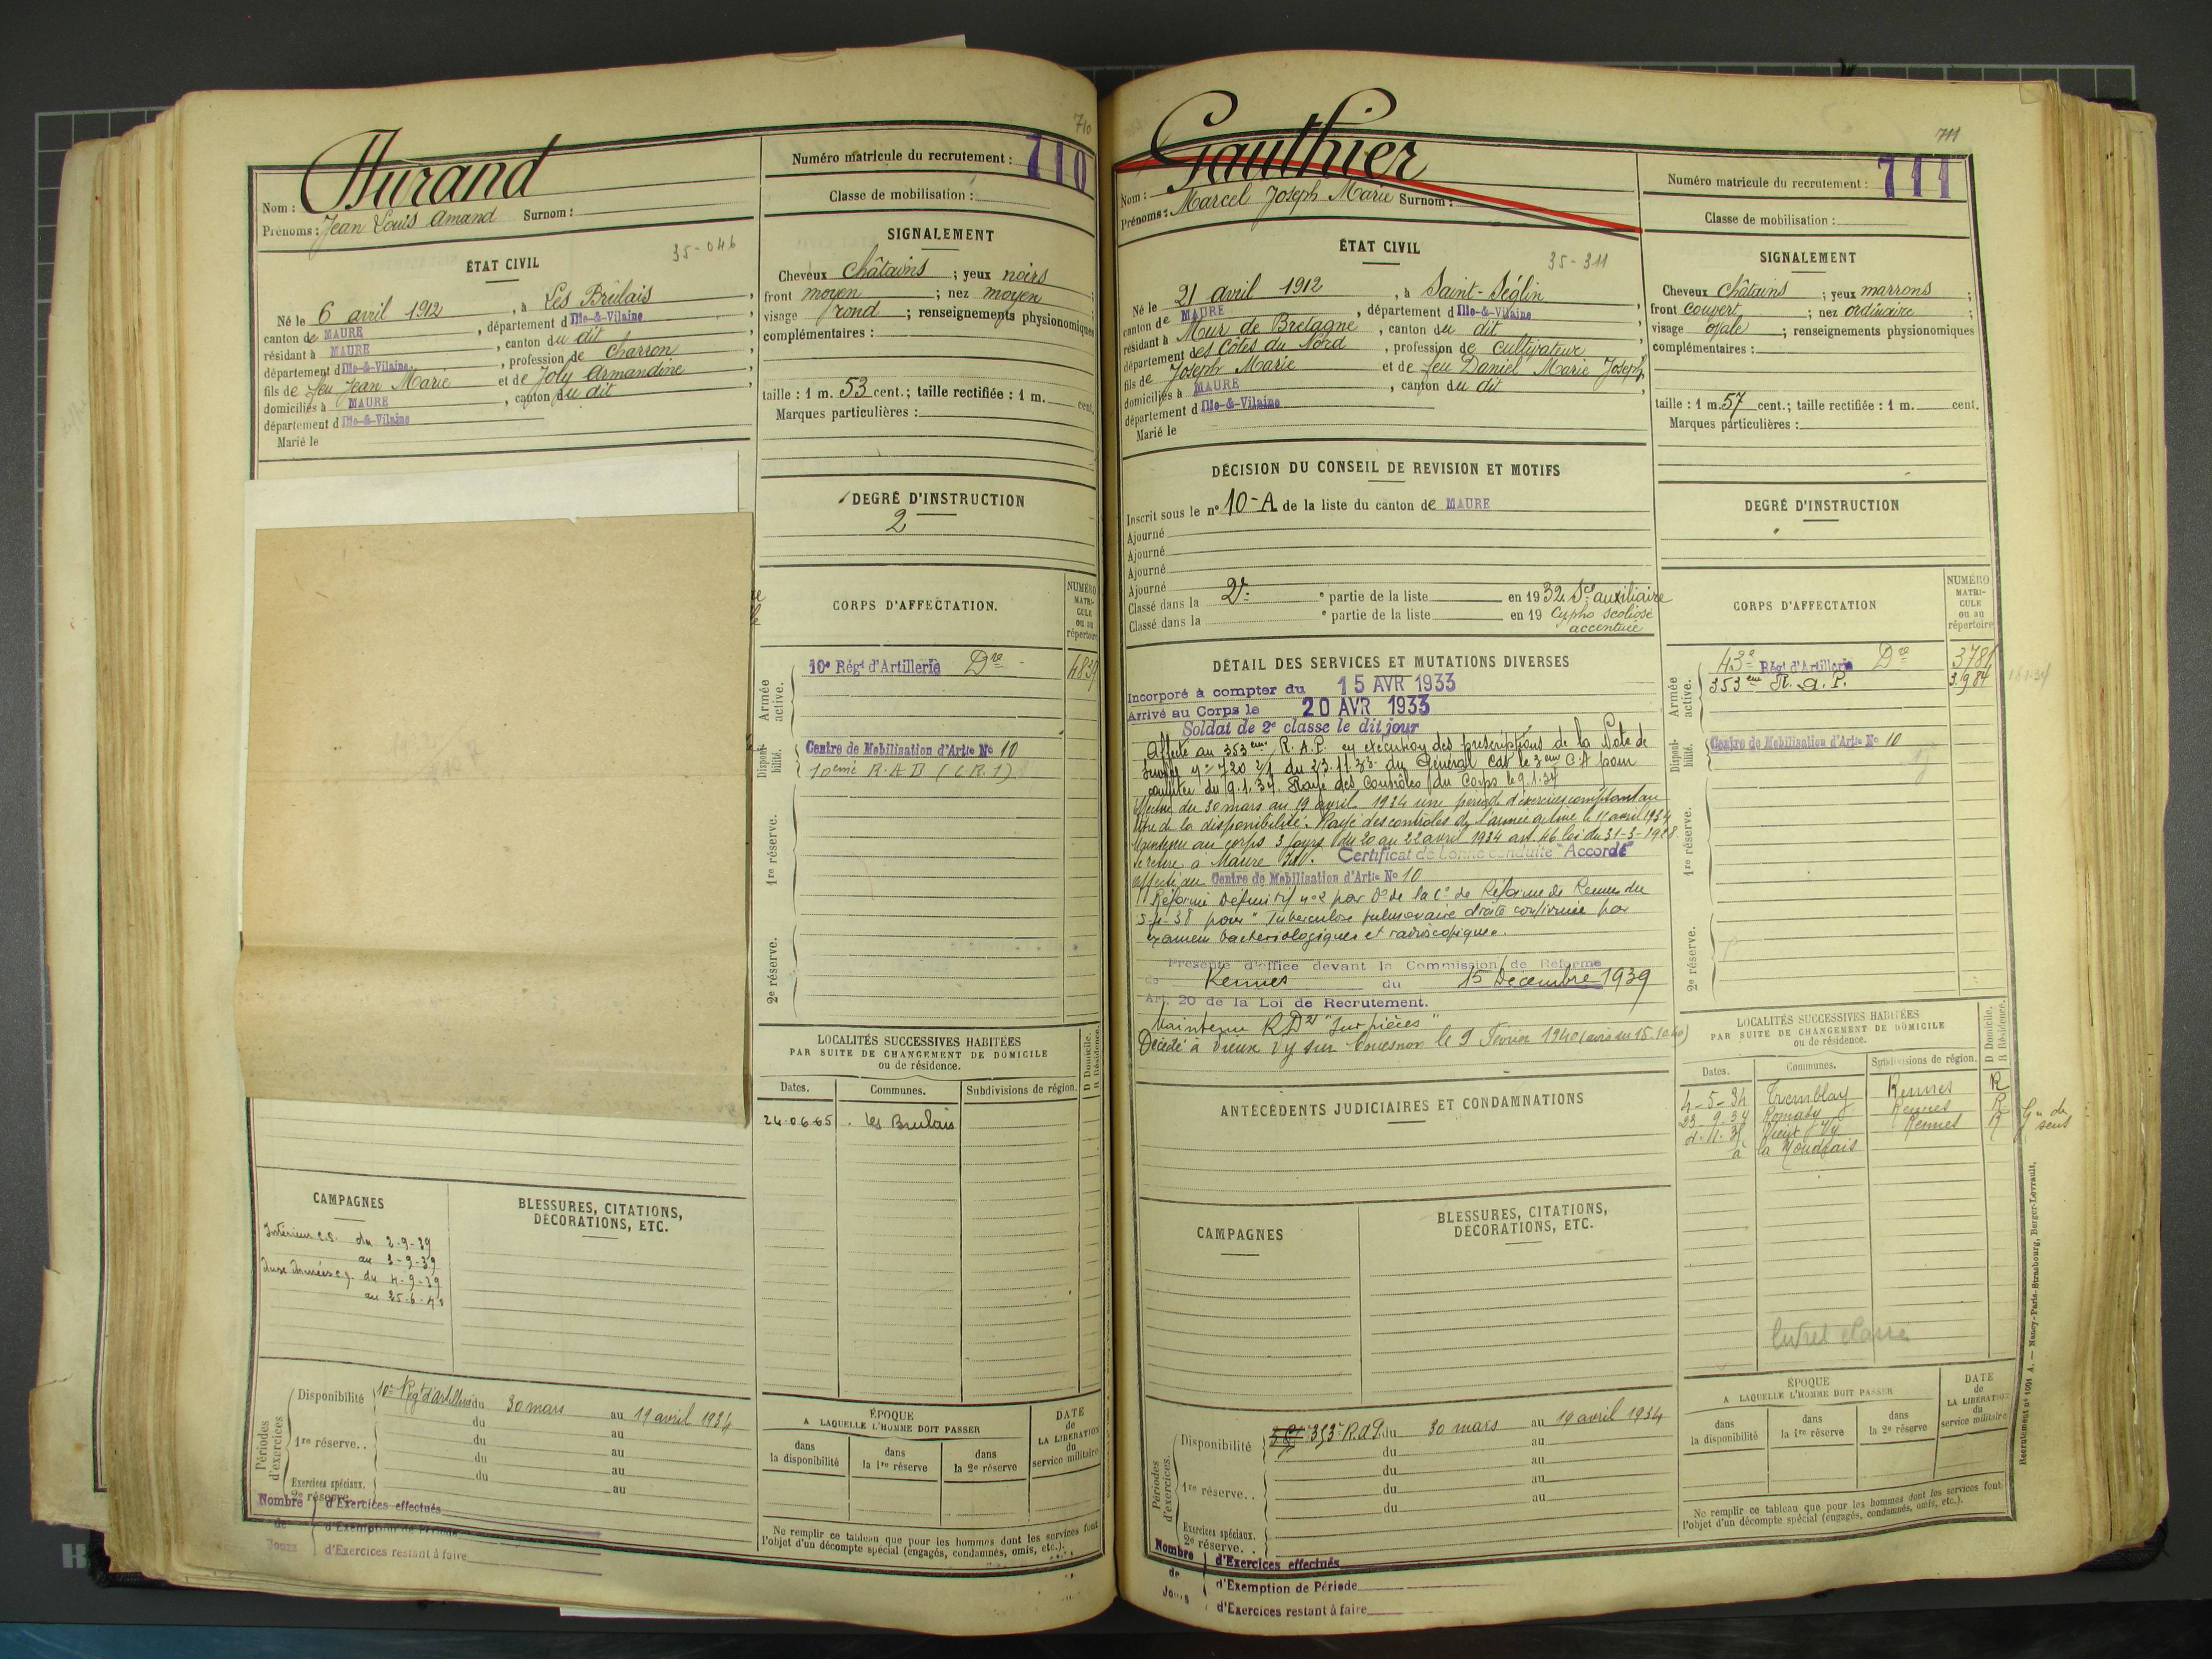 710
Durand
Nom :
Prénoms : Jean Louis Amand Surnom :
Numéro matricule du recrutement : 710
Classe de mobilisation :
ÉTAT CIVIL
35-046
Né le 6 avril 1912, à Les Brulais,
canton de MAURE, département d Ille-&-Vilaine,
résidant à MAURE, canton du dit,
département d Ille-&-Vilaine, profession de charron,
fils de feu Jean Marie et de Joly Armandine
domiciliés à MAURE, canton du dit
département d Ille-&-Vilaine
Marié le
SIGNALEMENT
Cheveux châtains ; yeux noirs
front moyen ; nez moyen ;
visage rond ; renseignements physionomiques
complémentaires :
taille : 1 m. 53 cent. ; taille rectifiée : 1 m. cent.
Marques particulières :
DEGRÉ D'INSTRUCTION
2
CORPS D'AFFECTATION.
NUMÉRO
MATRI-
CULE
ou au
répertoire
Armée active.
10e Régt d'Artillerie Dre 4839
Disponi-bilité.
Centre de Mobilisation d'Artie No 10
10eme R.A.D (C.R.1)
1re réserve.
2e réserve.
LOCALITÉS SUCCESSIVES HABITÉES
PAR SUITE DE CHANGEMENT DE DOMICILE
ou de résidence.
D Domicile.
R Résidence.
Dates. Communes. Subdivisions de région.
24.06.65 Les Brulais
CAMPAGNES
Intérieur c.s. du 2-9-39
au 3-9-39
du 4-9-39
au 25-6-40
BLESSURES, CITATIONS,
DÉCORATIONS, ETC.
Périodes d'exercices
Disponibilité 10e Régt d'artillerie du 30 mars au 19 avril 1934
du au
1re réserve.. du au
du au
du au
Exercices spéciaux.
2e réserve
Nombre de Jours
d'Exercices effectués
d'Exemption de Période
d'Exercices restant à faire
ÉPOQUE
A LAQUELLE L'HOMME DOIT PASSER
dans la disponibilité
dans la 1re réserve
dans la 2e réserve
DATE
de
LA LIBÉRATION
du
service militaire
Ne remplir ce tableau que pour les hommes dont les services font
l'objet d'un décompte spécial (engagés, condamnés, omis, etc.).
711
Gauthier
Nom :
Prénoms : Marcel Joseph Marie Surnom :
Numéro matricule du recrutement : 711
Classe de mobilisation :
ÉTAT CIVIL
35-311
Né le 21 avril 1912, à Saint-Séglin,
canton de MAURE, département d Ille-&-Vilaine,
résidant à Mur de Bretagne, canton du dit,
département des Côtes du Nord, profession de cultivateur,
fils de Joseph Marie et de feu Daniel Marie Joseph,
domiciliés à MAURE, canton du dit
département d Ille-&-Vilaine
Marié le
SIGNALEMENT
Cheveux châtains ; yeux marrons ;
front couvert ; nez ordinaire ;
visage ovale ; renseignements physionomiques
complémentaires :
taille : 1 m. 57 cent. ; taille rectifiée : 1 m. cent.
Marques particulières :
DÉCISION DU CONSEIL DE REVISION ET MOTIFS
Inscrit sous le n° 10-A de la liste du canton de MAURE
Ajourné
Ajourné
Ajourné
Ajourné
Classé dans la 2e e partie de la liste en 1932. Sce auxiliaire
Classé dans la e partie de la liste en 19 Cypho scoliose
accentuée
DEGRÉ D'INSTRUCTION
DÉTAIL DES SERVICES ET MUTATIONS DIVERSES
Incorporé à compter du 15 AVR 1933
Arrivé au Corps le 20 AVR 1933
Soldat de 2e classe le dit jour
Affecté au 353eme R.A.P. en exécution des prescriptions de la Note de
Service n° 720 2/1 du 23.11.33 du Général Cdt le 3eme C.A pour
compter du 9.1.34. Rayé des Contrôles du Corps le 9.1.34
Effectue du 30 mars au 19 avril 1934 une période d'exercices comptant au
titre de la disponibilité. Rayé des controles de l'armée active le 11 avril 1934
Maintenu au corps 3 jours du 20 au 22 avril 1934 art. 46 loi du 31-3-1928.
Se retire à Maure I&V. Certificat de bonne conduite "Accordé"
Affecté au Centre de Mobilisation d'Artie No 10
Réformé Définitif n°2 par Don de la Con de Réforme de Rennes du
pour "Tuberculose pulmonaire droite confirmée par
examen bactériologiques et radioscopique".
Présenté d'office devant la Commission de Réforme
de Rennes du 15 Décembre 1939
Art. 20 de la Loi de Recrutement.
Maintenu RD2 "Sur pièces"
Décédé à Vieux Vy sur Couesnon le 9 Février 1940 (avis du 15.10.40)
CORPS D'AFFECTATION
NUMÉRO
MATRI-
CULE
ou au
répertoire
Armée active.
43e Régt d'Artillerie Dre 3781
353eme R.A.P. 3.984
Disponi-bilité.
Centre de Mobilisation d'Artie No 10
1re réserve.
2e réserve.
LOCALITÉS SUCCESSIVES HABITÉES
PAR SUITE DE CHANGEMENT DE DOMICILE
ou de résidence.
D Domicile.
R Résidence.
Dates. Communes. Subdivisions de région.
4-5-34 Tremblay Rennes R
23.9.34 Romazy Rennes R
Vieux Vy Rennes R
à la
ANTÉCÉDENTS JUDICIAIRES ET CONDAMNATIONS
CAMPAGNES
BLESSURES, CITATIONS,
DÉCORATIONS, ETC.
livret classé
Périodes d'exercices.
Disponibilité 353e R.A.P. du 30 mars au 19 avril 1934
du au
du au
1re réserve.. du au
du au
Exercices spéciaux.
2e réserve..
Nombre de Jours
d'Exercices effectués
d'Exemption de Période
d'Exercices restant à faire
ÉPOQUE
A LAQUELLE L'HOMME DOIT PASSER
dans la disponibilité
dans la 1re réserve
dans la 2e réserve
DATE
de
LA LIBÉRATION
du
service militaire
Ne remplir ce tableau que pour les hommes dont les services font
l'objet d'un décompte spécial (engagés, condamnés, omis, etc.).
Recrutement n° 1091 A. — Nancy-Paris-Strasbourg, Berger-Levrault.